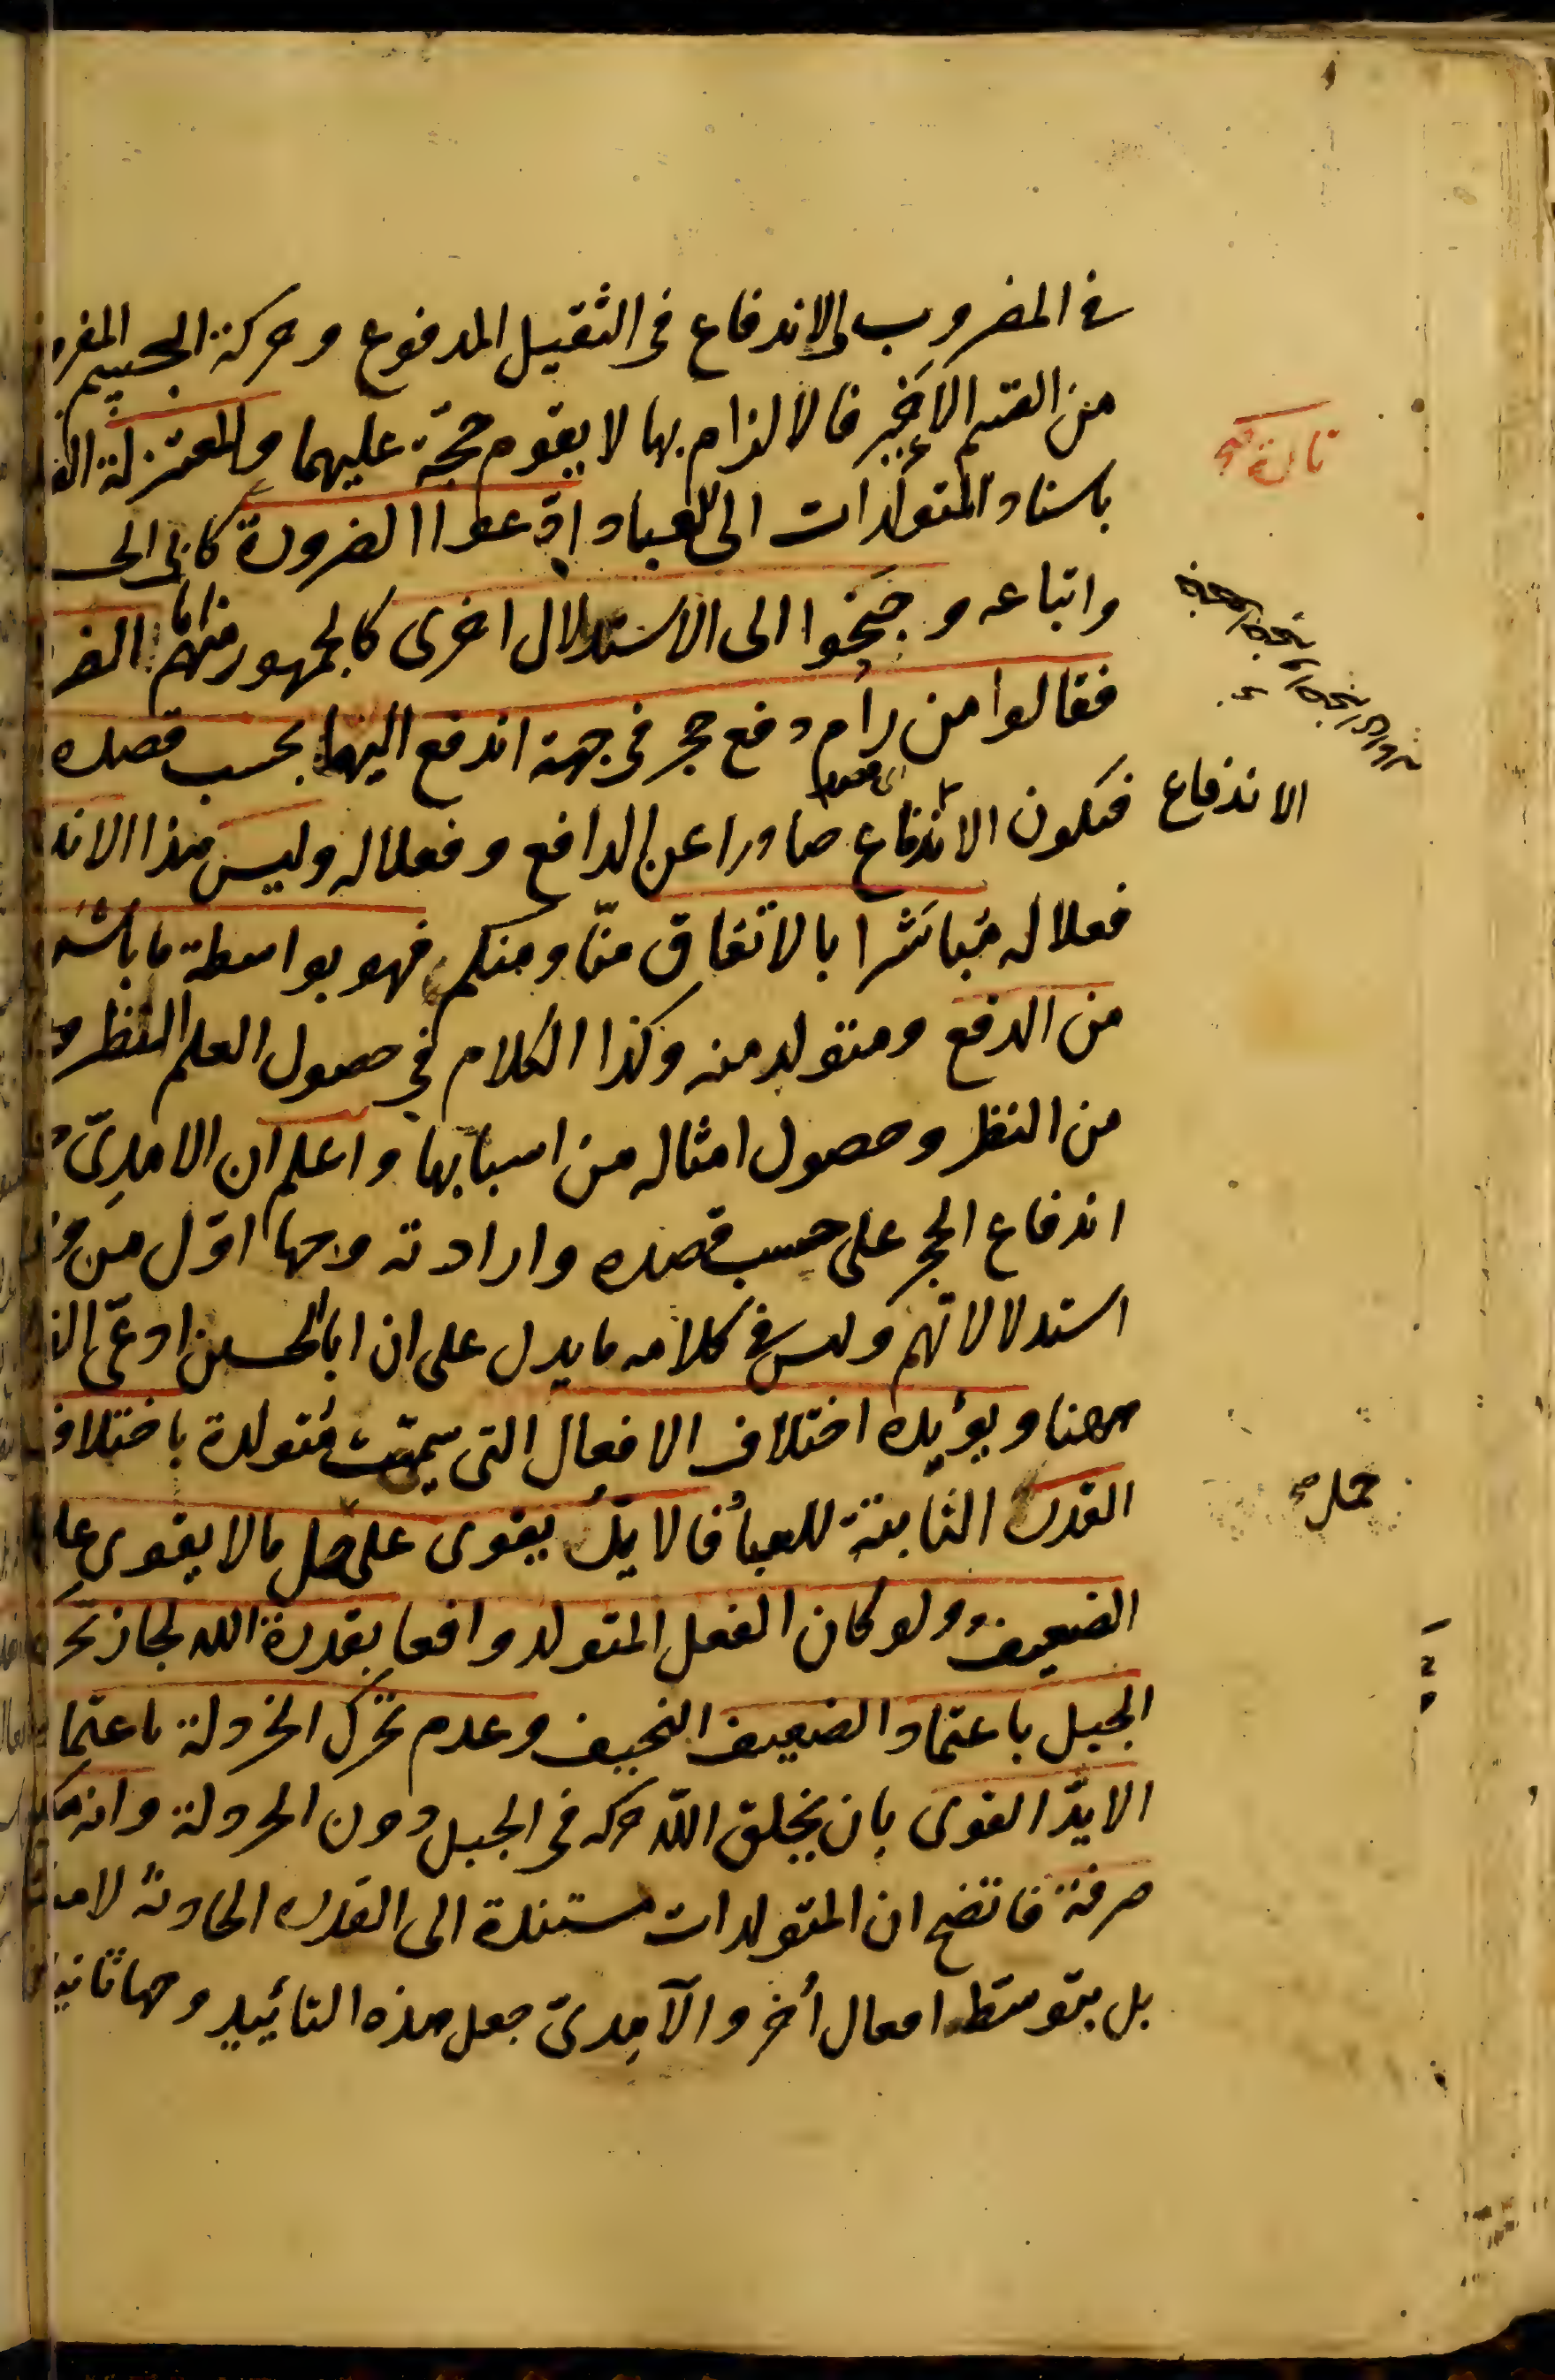 في المضروب والاندفاع في الثقيل المدفوع وحركة الجسيم
من القسم الاخير فالالزام بها لا يقوم حجّة عليهما والمعتزلة
تارة صح
باسناد المتولدات الى العباد ادّعوا الضرورة كابى الحـ
واتباعه وجنحوا الى الاستدلال اخرى كالجمهور منهم
فقالوا من رام دفع حجر في جهة اندفع اليها بحسب قصده
الاندفاع
فيكون الاندفاع صادرا عن الدافع وفعلا له وليس هذا الاند
فعلا له مُباشرا بالاتفاق منّا ومنكم فهو بواسطة ما باشره
من الدفع ومتولد منه وكذا الكلام في حصول العلم النظر
من النظر وحصول امثاله من اسبابها واعلم ان الامدىّ
اندفاع الحجر على حسب قصده وارادته وجها اوّل من
استدلالاتهم وليس في كلامه ما يدل على ان ابا الحسين ادعّى
ههنا ويؤيده اختلاف الافعال التى سمّيت متولدة باختلاف
القدر الثابتة للعباد فالايّد يقوى على حمل ما لا يقوى عليه
حمل صح
الضعيف ولو كان الفعل المتولد واقعا بقدرة الله لجاز تحرك
الجبل باعتماد الضعيف النحيف وعدم تحرّك الخردلة باعتما
الايدّ القوى بان يخلق اللّه حركة في الجبل دون الخردلة وانه
صرفة فاتضح ان المتولدات مستندة الى القدر الحادثة لا
بل بتوسّط افعال أخر والآمدىّ جعل هذه التائييد وجها ثانيا